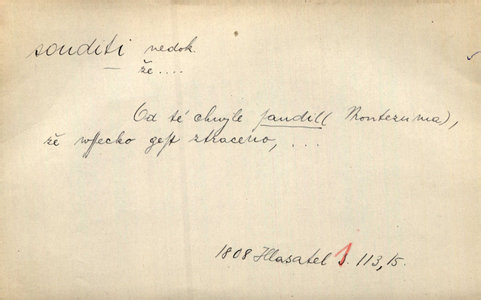 souditi nedok.
že....
Od té chwyle saudil (Montezuma),
že wssecko gest ztraceno, ...
1808 Hlasatel 3. 113, 15.